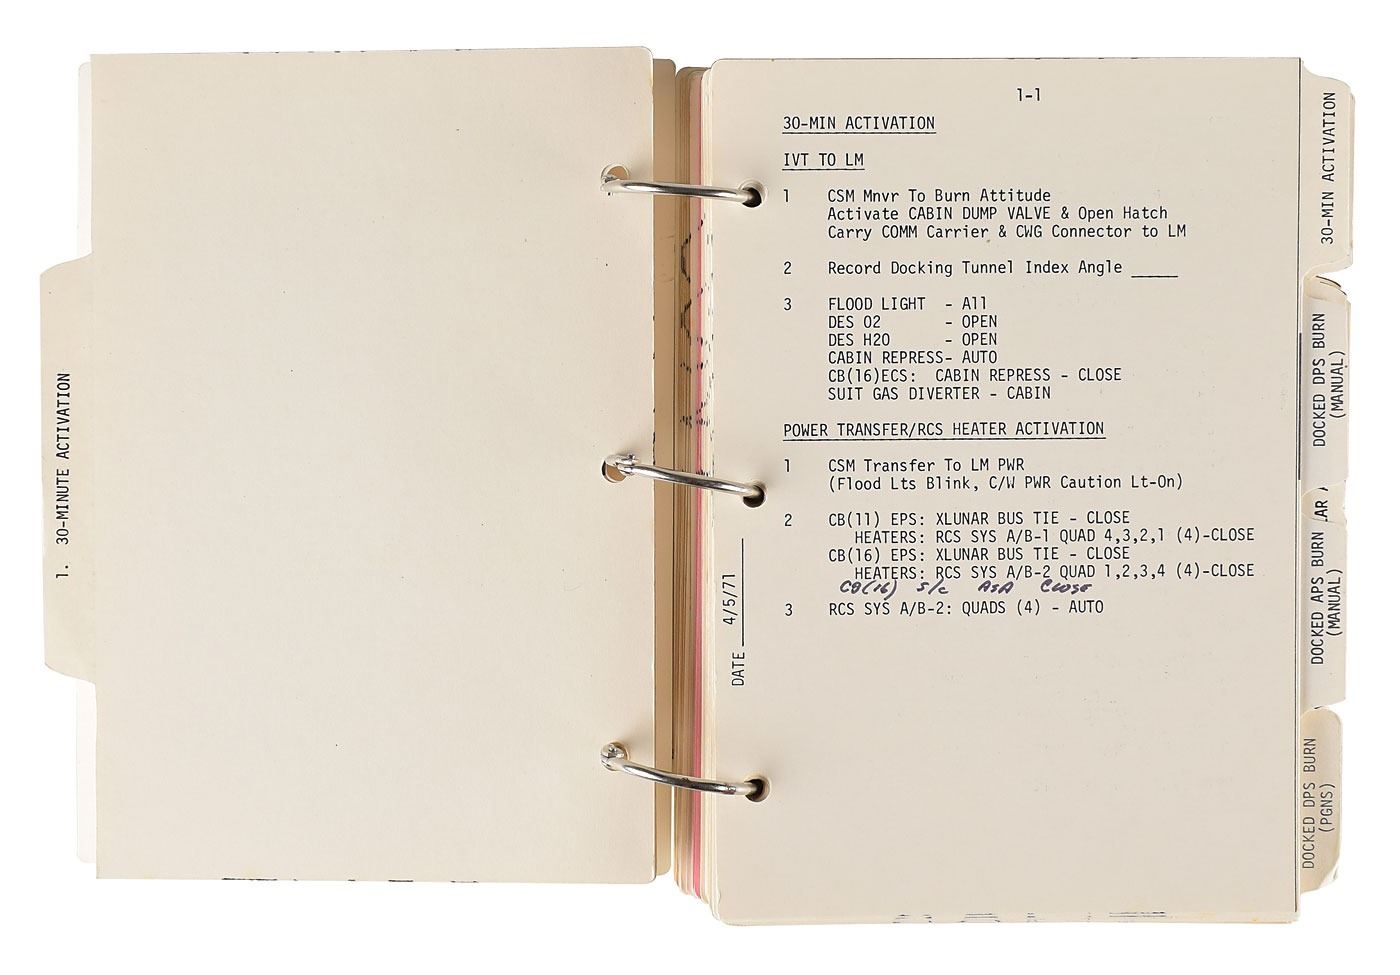 1. 30-MINUTE ACTIVATION
1-1
30-MIN ACTIVATION
IVT TO LM
1 CSM Mnvr To Burn Attitude
Activate CABIN DUMP VALVE & Open Hatch
Carry COMM Carrier & CWG Connector to LM
2 Record Docking Tunnel Index Angle _____
3 FLOOD LIGHT - All
DES O2 - OPEN
DES H2O - OPEN
CABIN REPRESS- AUTO
CB(16)ECS: CABIN REPRESS - CLOSE
SUIT GAS DIVERTER - CABIN
POWER TRANSFER/RCS HEATER ACTIVATION
1 CSM Transfer To LM PWR
(Flood Lts Blink, C/W PWR Caution Lt-On)
2 CB(11) EPS: XLUNAR BUS TIE - CLOSE
HEATERS: RCS SYS A/B-1 QUAD 4,3,2,1 (4)-CLOSE
CB(16) EPS: XLUNAR BUS TIE - CLOSE
HEATERS: RCS SYS A/B-2 QUAD 1,2,3,4 (4)-CLOSE
CB(16) S/C ASA CLOSE
3 RCS SYS A/B-2: QUADS (4) - AUTO
DATE 4/5/71
30-MIN ACTIVATION
DOCKED DPS BURN
(MANUAL)
DOCKED APS BURN
(MANUAL)
DOCKED DPS BURN
(PGNS)